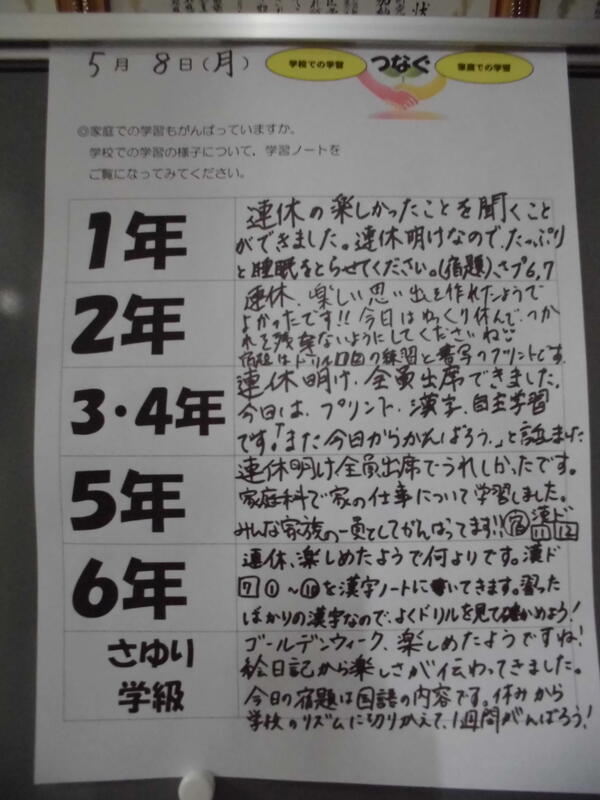 状
5月 8日(月)
学校での学習
つなぐ
家庭での学習
◎家庭での学習もがんばっていますか。
学校での学習の様子について、学習ノートを
ご覧になってみてください。
1年
連休の楽しかったことを聞くこと
ができました。連休明けなので、たっぷり
と睡眠をとらせてください。(宿題)、さプ6,7
2年
連休、楽しい思い出を作れたようで
よかったです!! 今日はゆっくり休んで、つか
れを残さないようにしてくださいね
宿題はドリル
の練習と書写のプリントです。
3・4年
連休明け、全員出席できました。
今日は、プリント、漢字、自主学習
です。「また今日からがんばろう。」と話しました
5年
連休明け全員出席でうれしかったです。
家庭科で家の仕事について学習しました。
みんな家族の一員としてがんばってます!! 宿 漢ド 11 12
6年
連休、楽しめたようで何よりです。漢ド
7 ①〜⑩を漢字ノートに書いてきます。習った
ばかりの漢字なので、よくドリルを見て確かめよう!
さゆり
学級
ゴールデンウィーク、楽しめたようですね!
絵日記から楽しさが伝わってきました。
今日の宿題は国語の内容です。休みから
学校のリズムに切りかえて、1週間がんばろう!